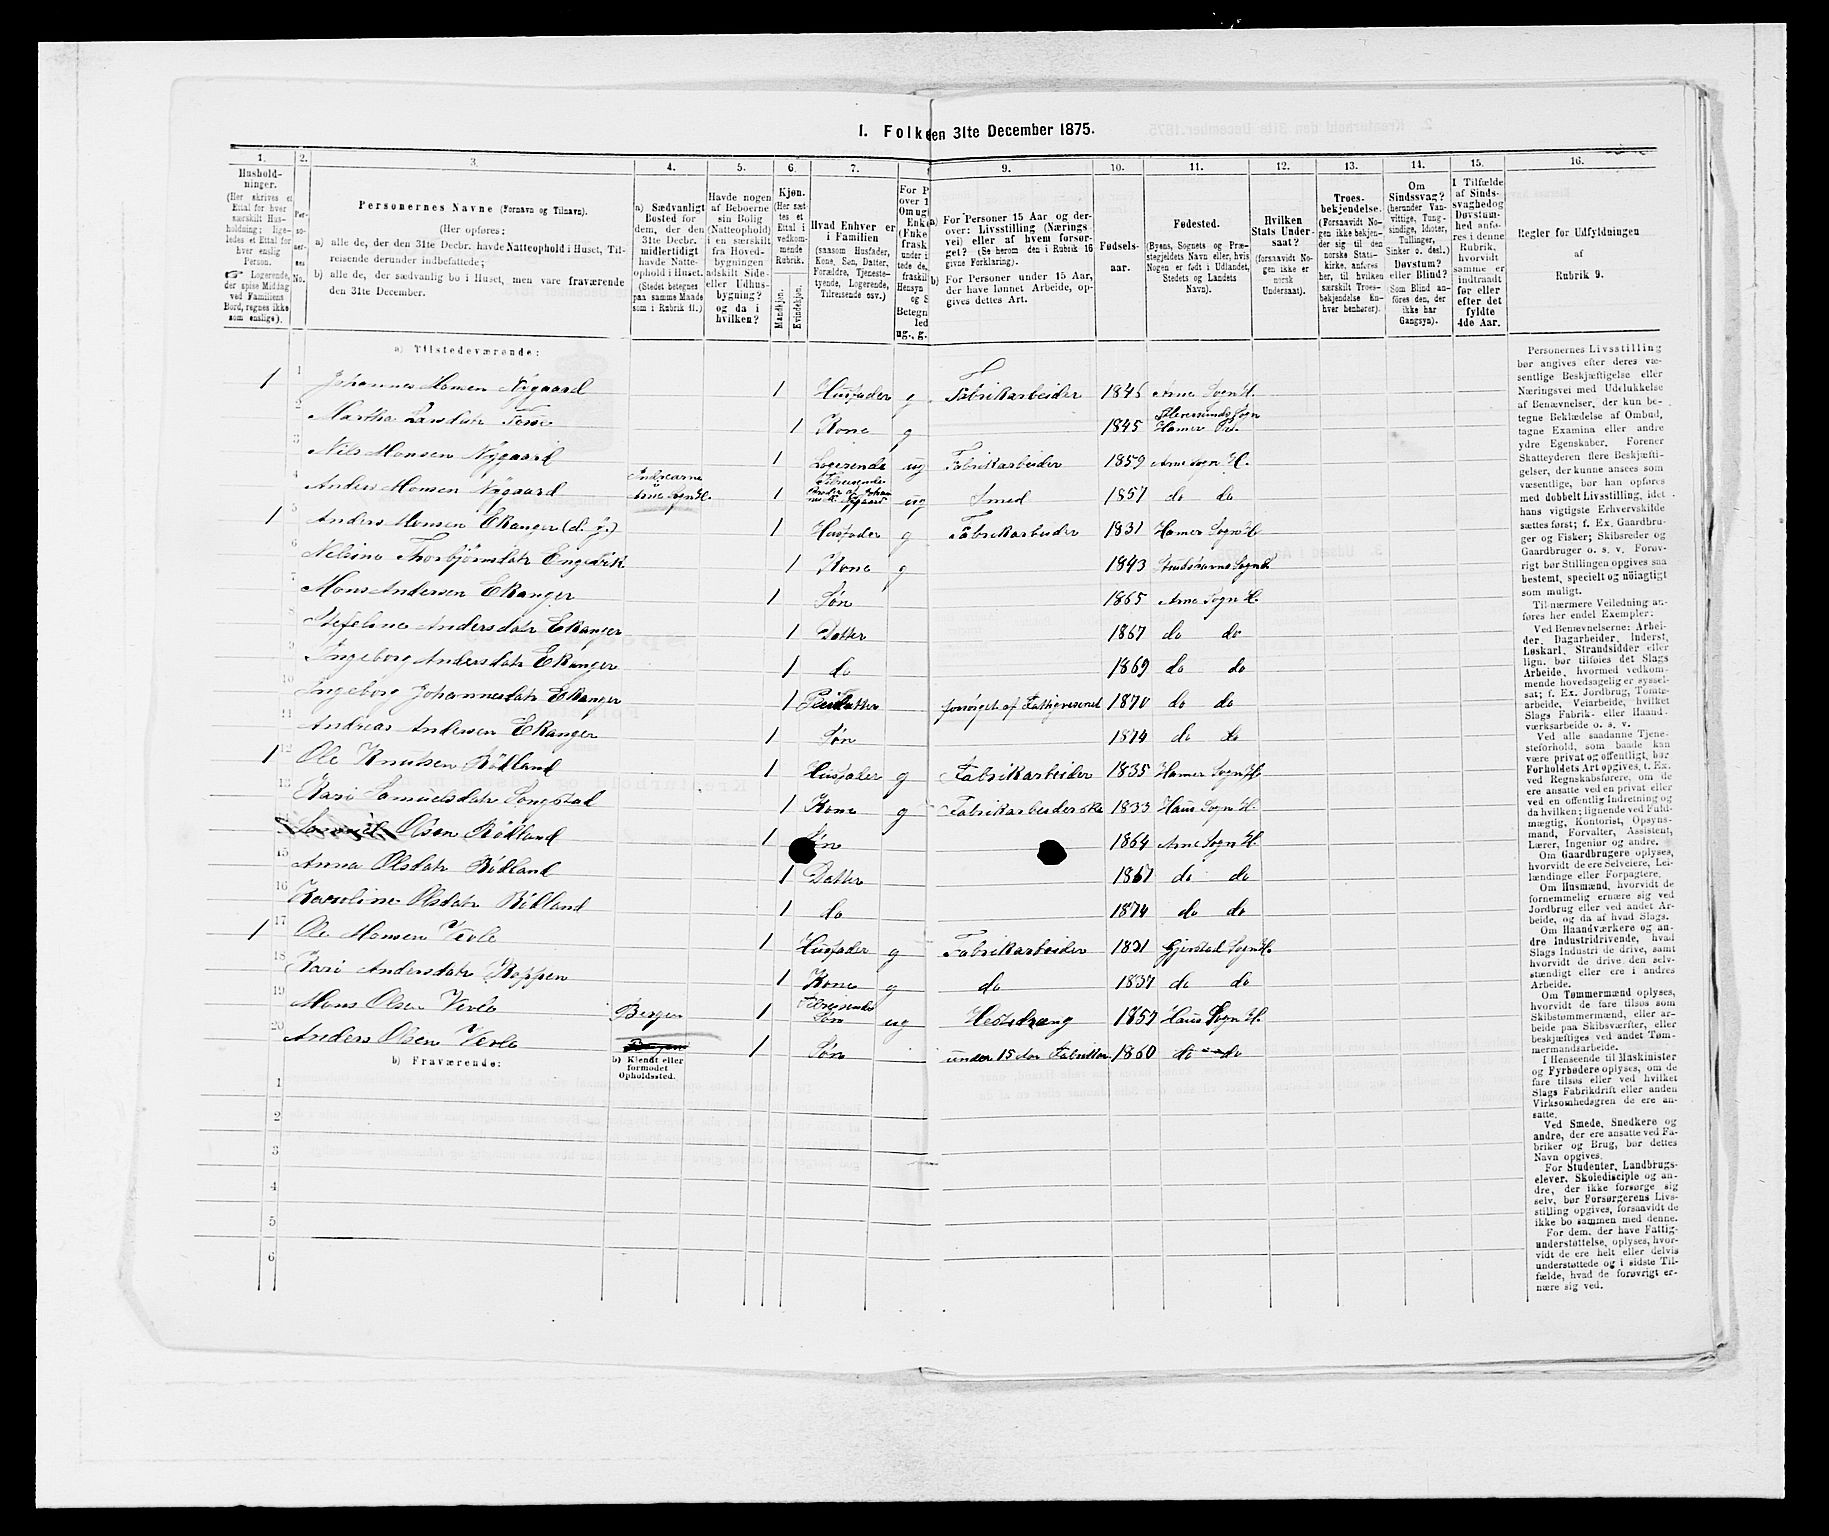 1. Folke en 31te December 1875.
1. 2. 3. 4. 5. 6. 7. 9. 10. 11. 12. 13. 14. 15. 16.
Hushold-
ninger.
(Her skrives et
Ettal for hver
særskilt Hus-
holdning; lige-
ledes et Ettal for
hver enslig
Person.
☞ Logerende,
der spise Middag
ved Familiens
Bord, regnes ikke
som enslige).
Per-
so-
ner-
nes
No.
Personernes Navne (Fornavn og Tilnavn).
(Her opføres:
a) alle de, der den 31te Decbr. havde Natteophold i Huset, Til-
reisende derunder indbefattede;
b) alle de, der sædvanlig bo i Huset, men vare fraværende
den 31te December.
a) Sædvanligt
Bosted for
dem, der den
31te Decbr.
midlertidigt
havde Natte-
ophold i Huset.
(Stedet betegnes
paa samme Maade
som i Rubrik 11.)
Havde nogen
af Beboerne
sin Bolig
(Natteophold)
i en særskilt
fra Hoved-
bygningen
adskilt Side-
eller Udhus-
bygning?
og da i
hvilken?
Kjøn.
(Her sæt-
tes et
Ettal i
vedkom-
mende
Rubrik.
Mandkjøn.
Kvindekjøn.
Hvad Enhver er
i Familien
(saasom Husfader,
Kone, Søn, Datter,
Forældre, Tjeneste-
tyende, Logerende,
Tilreisende osv.)
For P
over 1
Om ug
Enke
(Fnke
frask
under i
tede de,
fraskil
Hensyn
og S
Betegn
led
ug., g.
a)
For Personer 15 Aar og der-
over: Livsstilling (Nærings
vei) eller af hvem forsør-
get? (Se herom den i Rubrik 16
givne Forklaring).
b) For Personer under 15 Aar,
der have lønnet Arbeide, op-
gives dettes Art.
Fødsels-
aar.
Fødested.
(Byens, Sognets og Præ-
stegjeldets Navn eller, hvis
Nogen er født i Udlandet,
Stedets og Landets
Navn).
Hvilken
Stats Under-
saat?
(forsaavidt No-
gen ikke er
norsk
Undersaat).
Troes-
bekjendelse.
(Forsaavidt No-
gen ikke bekjen-
der sig til den
norske Stats-
kirke, anføres
her, til hvilken
særskilt Troes-
bekjendelse En-
hver henhører).
Om
Sindssvag?
(herunder Van-
vittige, Tung-
sindige, Idioter,
Tullinger,
Sinker o. desl.)
Døvstum?
eller Blind?
(Som Blind an-
føres den, der
ikke har
Gangsyn).
I Tilfælde
af Sinds-
svaghed og
Døvstum-
hed anfø-
res i denne
Rubrik,
hvorvidt
samme er
indtraadt
før eller
efter det
fyldte
4de Aar.
Regler for Udfyldningen
af
Rubrik 9.
a) Tilstedeværende:
1 1 Johannes Monsen Nygaard 1 Husfader g Fabrikarbeider Arne Sogn H.
2 Martha 1 Kone g 1845 Hamer Pr.
3 Nils Monsen Nygaard 1 Logerende ug Fabrikarbeider 1859 Arne Sogn H.
4 Anders Monsen Nygaard Indrearne Arne Sogn H. 1 Tilreisende ug Smed 1857 do do
1 5 Anders Monsen Ekanger (d. y.) 1 Husfader g Fabrikarbeider 1831 Hamer Sogn H.
6 Nelsine Thorbjørnsdatr 1 Kone g 1843
7 Mons Andersen Ekanger 1 Søn 1865 Arne Sogn H.
8 Stefeline Andersdatr Ekanger 1 Datter 1867 do do
9 Ingeborg Andersdatr Ekanger 1 do 1869 do do
10 Ingeborg Johannesdatr Ekanger 1 forsørget af Fattigvesenet 1870 do do
11 Andreas Andersen Ekanger 1 Søn 1874 do do
1 12 Ole Knutsen Rödland 1 Husfader g Fabrikarbeider 1835 Hamer Sogn H.
13 Kari Samuelsdatr Songstad 1 Kone g Fabrikarbeiderske 1833 Haus Sogn H.
Samuel Olsen Rödland 1 Søn 1864 Arne Sogn H.
15 Anna Olsdatr Rödland 1 Datter 1867 do do
16 Karoline Olsdatr Rödland 1 do 1874 do do
1 17 Ole Monsen Verle 1 Husfader g Fabrikarbeider 1831 Gjerstad Sogn H.
18 Kari Andersdatr Koppen 1 Kone g do 1837 do do
19 Mons Olsen Verle Bergen 1 Tilreisende Søn ug Hestedreng 1857 Haus Sogn H.
20 Anders Olsen Verle Bergen 1 Søn under 15 Aar 1860 do do
b) Fraværende:
b) Kjendt eller
formodet
Opholdssted.
1
2
3
4
5
6
Personernes Livsstilling
bør angives efter deres væ-
sentlige Beskjæftigelse eller
Næringsvei med Udelukkelse
af Benævnelser, der kun be-
tegne Beklædelse af Ombud,
tagne Examina eller andre
ydre Egenskaber. Forener
Skatteyderen flere Beskjæfti-
gelser, der kunne ansees som
væsentlige, bør han opføres
med dobbelt Livsstilling, idet
hans vigtigste Erhvervskilde
sættes først; f. Ex. Gaardbru-
ger og Fisker; Skibsreder og
Gaardbruger o. s. v. Forøv-
rigt bør Stillingen opgives saa
bestemt, specielt og nöiagtigt
som muligt.
Til nærmere Veiledning an-
føres her endel Exempler:
Ved Benævnelserne: Arbei-
der, Dagarbeider, Inderst,
Løskarl, Strandsidder eller
lign. bør tilføies det Slags
Arbeide, hvormed vedkom-
mende hovedsagelig er syssel-
sat; f. Ex. Jordbrug, Tomte-
arbeide, Veiarbeide, hvilket
Slags Fabrik- eller Haand-
værksarbeide o. s. v.
Ved alle saadanne Tjene-
steforhold, som baade kan
være privat og offentlig, bør
Forholdets Art opgives, t. Ex.
ved Regnskabsførere, om de
ere ansatte ved en privat eller
ved en offentlig Indretning og
da hvilken; lignende ved Fuld-
mægtig, Kontorist, Opsyns-
mand, Forvalter, Assistent,
Lærer, Ingeniør og andre.
Om Gaardbrugere oplyses,
hvorvidt de ere Selveiere, Lei-
lændinge eller Forpagtere.
Om Husmænd, hvorvidt de
fornemmelig ernære sig ved
Jordbrug eller ved andet Ar-
beide, og da af hvad Slags.
Om Haandværkere og an-
dre Industridrivende, hvad
Slags Industri de drive, samt
hvorvidt de drive den selv-
stændigt eller ere i andres
Arbeide.
Om Tømmermænd oplyses,
hvorvidt de fare tilsøs som
Skibstømmermænd, eller ar-
beide paa Skibsværfter, eller
beskjæftiges ved andet Tøm-
mermandsarbeide.
I Henseende til Maskinister
og Fyrbødere oplyses, om de
fare tilsøs eller ved hvilket
Slags Fabrikdrift eller anden
Virksomhedsgren de ere an-
satte.
Ved Smede, Snedkere og
andre, der ere ansatte ved Fa-
briker og Brug, bør dettes
Navn opgives.
For Studenter, Landbrugs-
elever, Skoledisciple og an-
dre, der ikke forsørge sig
selv, bør Forsørgerens Livs-
stilling opgives, forsaavidt de
ikke bo sammen med denne.
For dem, der have Fattig-
understøttelse, oplyses, hvor-
vidt de ere helt eller delvis
understøttede og i sidste Til-
fælde, hvad de forøvrigt er-
nære sig ved.